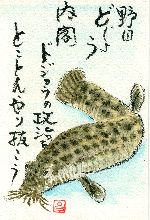 野田
どじょう
内閣
ドジョウの政治を
とことんやり抜こう